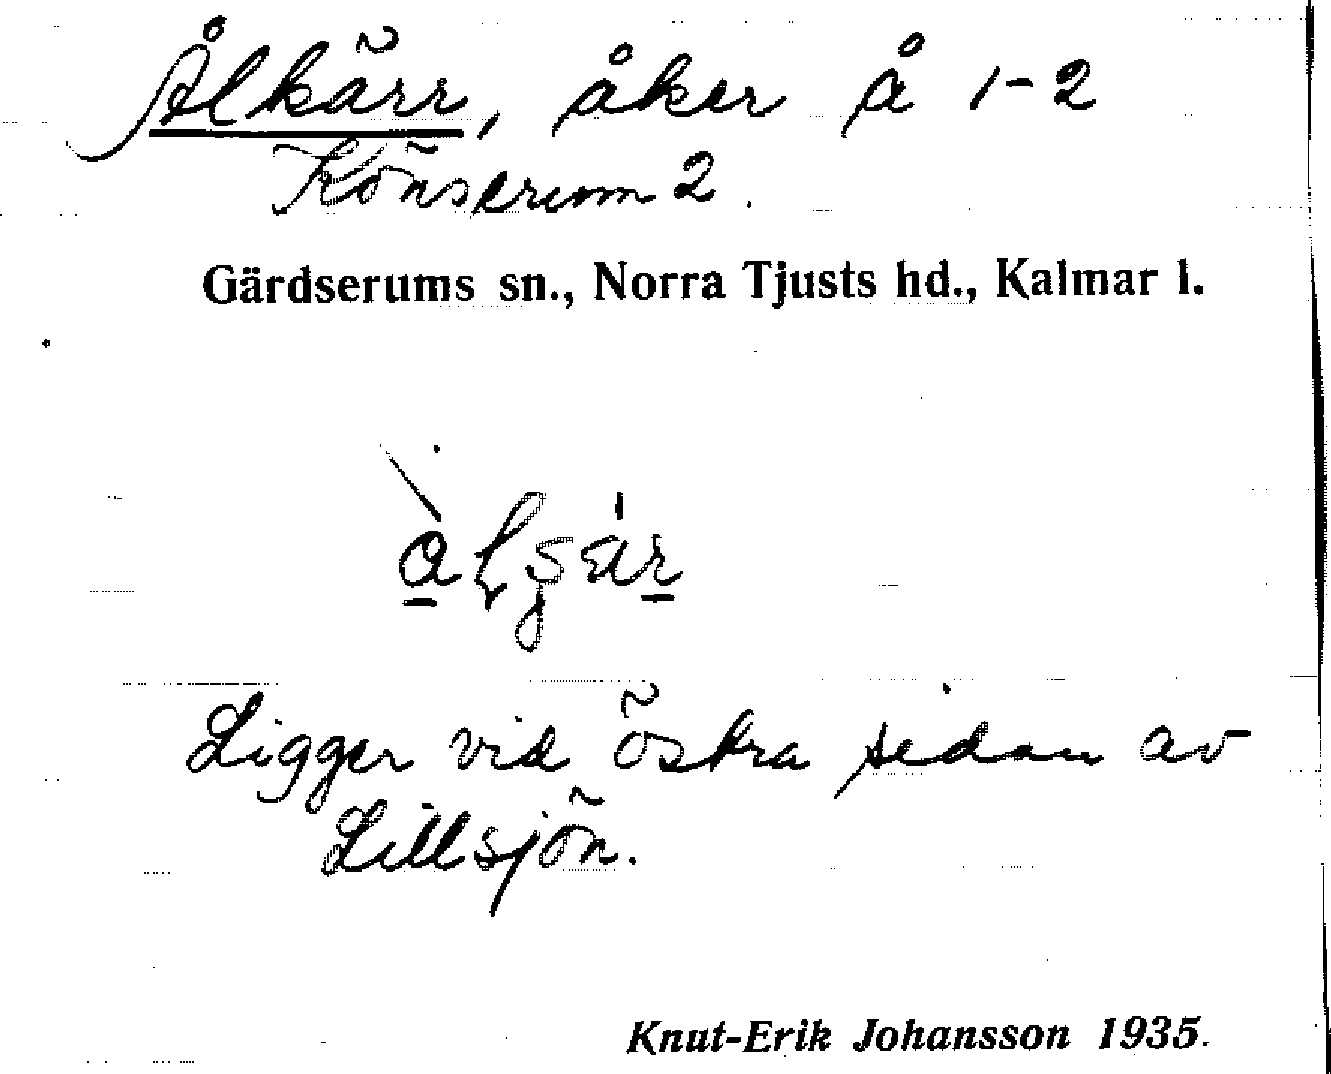 Ålkärr, åker å 1-2
Könserum 2.
Gärdserums sn., Norra Tjusts hd., Kalmar l.
Ligger vid östra sidan av
Lillsjön.
Knut-Erik Johansson 1935.